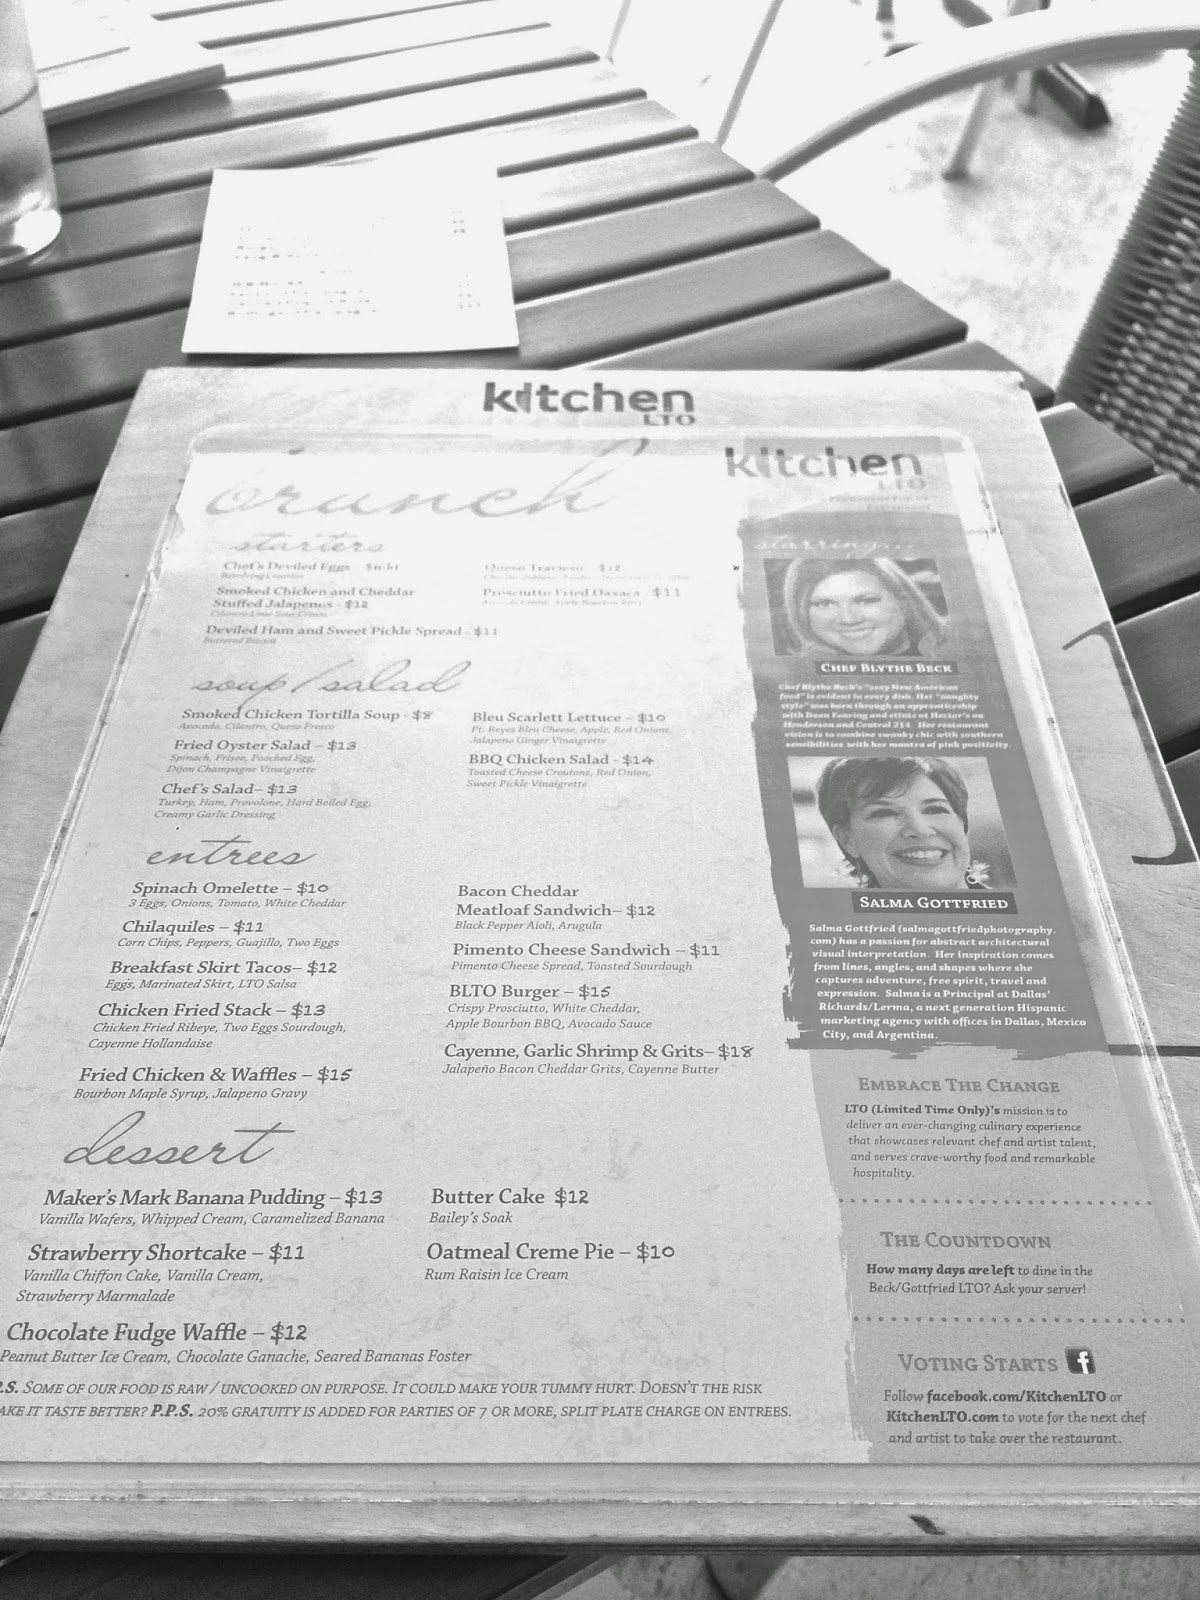 kitchen
LTO
kitchen
LTO
brunch
starters
Chef's Deviled Eggs
Smoked Chicken and Cheddar
Stuffed Jalapenos - $12
Deviled Ham and Sweet Pickle Spread - $11
Buttered Biscuit
Queso Travieso $12
Prosciutto Fried Oaxaca $11
soup/salad
Smoked Chicken Tortilla Soup - $8
Avocado, Cilantro, Queso Fresco
Fried Oyster Salad – $13
Spinach, Frisee, Poached Egg,
Dijon Champagne Vinaigrette
Chef's Salad– $13
Turkey, Ham, Provolone, Hard Boiled Egg,
Creamy Garlic Dressing
Bleu Scarlett Lettuce – $10
Pt. Reyes Bleu Cheese, Apple, Red Onions,
Jalapeno Ginger Vinaigrette
BBQ Chicken Salad - $14
Toasted Cheese Croutons, Red Onion,
Sweet Pickle Vinaigrette
entrees
Spinach Omelette – $10
3 Eggs, Onions, Tomato, White Cheddar
Chilaquiles – $11
Corn Chips, Peppers, Guajillo, Two Eggs
Breakfast Skirt Tacos– $12
Eggs, Marinated Skirt, LTO Salsa
Chicken Fried Stack – $13
Chicken Fried Ribeye, Two Eggs Sourdough,
Cayenne Hollandaise
Fried Chicken & Waffles – $15
Bourbon Maple Syrup, Jalapeno Gravy
Bacon Cheddar
Meatloaf Sandwich– $12
Black Pepper Aioli, Arugula
Pimento Cheese Sandwich – $11
Pimento Cheese Spread, Toasted Sourdough
BLTO Burger – $15
Crispy Prosciutto, White Cheddar,
Apple Bourbon BBQ, Avocado Sauce
Cayenne, Garlic Shrimp & Grits– $18
Jalapeño Bacon Cheddar Grits, Cayenne Butter
dessert
Maker's Mark Banana Pudding – $13
Vanilla Wafers, Whipped Cream, Caramelized Banana
Strawberry Shortcake – $11
Vanilla Chiffon Cake, Vanilla Cream,
Strawberry Marmalade
Chocolate Fudge Waffle – $12
Peanut Butter Ice Cream, Chocolate Ganache, Seared Bananas Foster
Butter Cake $12
Bailey's Soak
Oatmeal Creme Pie – $10
Rum Raisin Ice Cream
.S. Some of our food is raw / uncooked on purpose. It could make your tummy hurt. Doesn't the risk
ake it taste better? P.P.S. 20% gratuity is added for parties of 7 or more, split plate charge on entrees.
starring...
Chef Blythe Beck
Chef Blythe Beck's "sexy New American
food" is evident in every dish. Her "naughty
style" was born through an apprenticeship
with Dean Fearing and stints at Hector's on
Henderson and Central 214. Her restaurant
vision is to combine swanky chic with southern
sensibilities with her mantra of pink positivity.
Salma Gottfried
Salma Gottfried (salmagottfriedphotography.
com) has a passion for abstract architectural
visual interpretation. Her inspiration comes
from lines, angles, and shapes where she
captures adventure, free spirit, travel and
expression. Salma is a Principal at Dallas'
Richards/Lerma, a next generation Hispanic
marketing agency with offices in Dallas, Mexico
City, and Argentina.
Embrace The Change
LTO (Limited Time Only)'s mission is to
deliver an ever-changing culinary experience
that showcases relevant chef and artist talent,
and serves crave-worthy food and remarkable
hospitality.
The Countdown
How many days are left to dine in the
Beck/Gottfried LTO? Ask your server!
Voting Starts f
Follow facebook.com/KitchenLTO or
KitchenLTO.com to vote for the next chef
and artist to take over the restaurant.